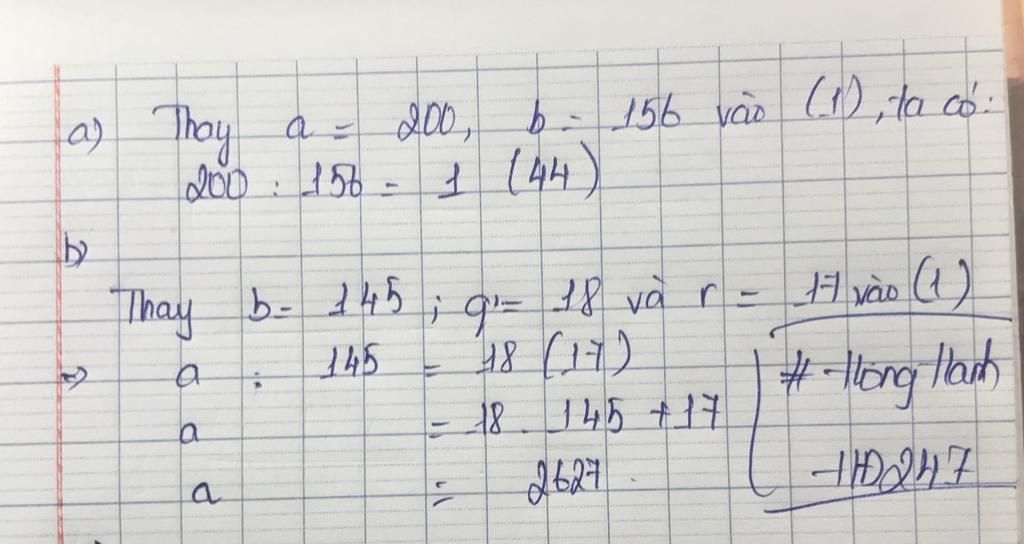 a) Thay a = 200, b = 156 vào (1), ta có:
200 : 156 = 1 (44)
b)
Thay b = 145 ; q = 18 và r = 17 vào (1)
=> a : 145 = 18 (17)
a = 18 . 145 + 17
a = 2627.
# Hong Hanh
HD247